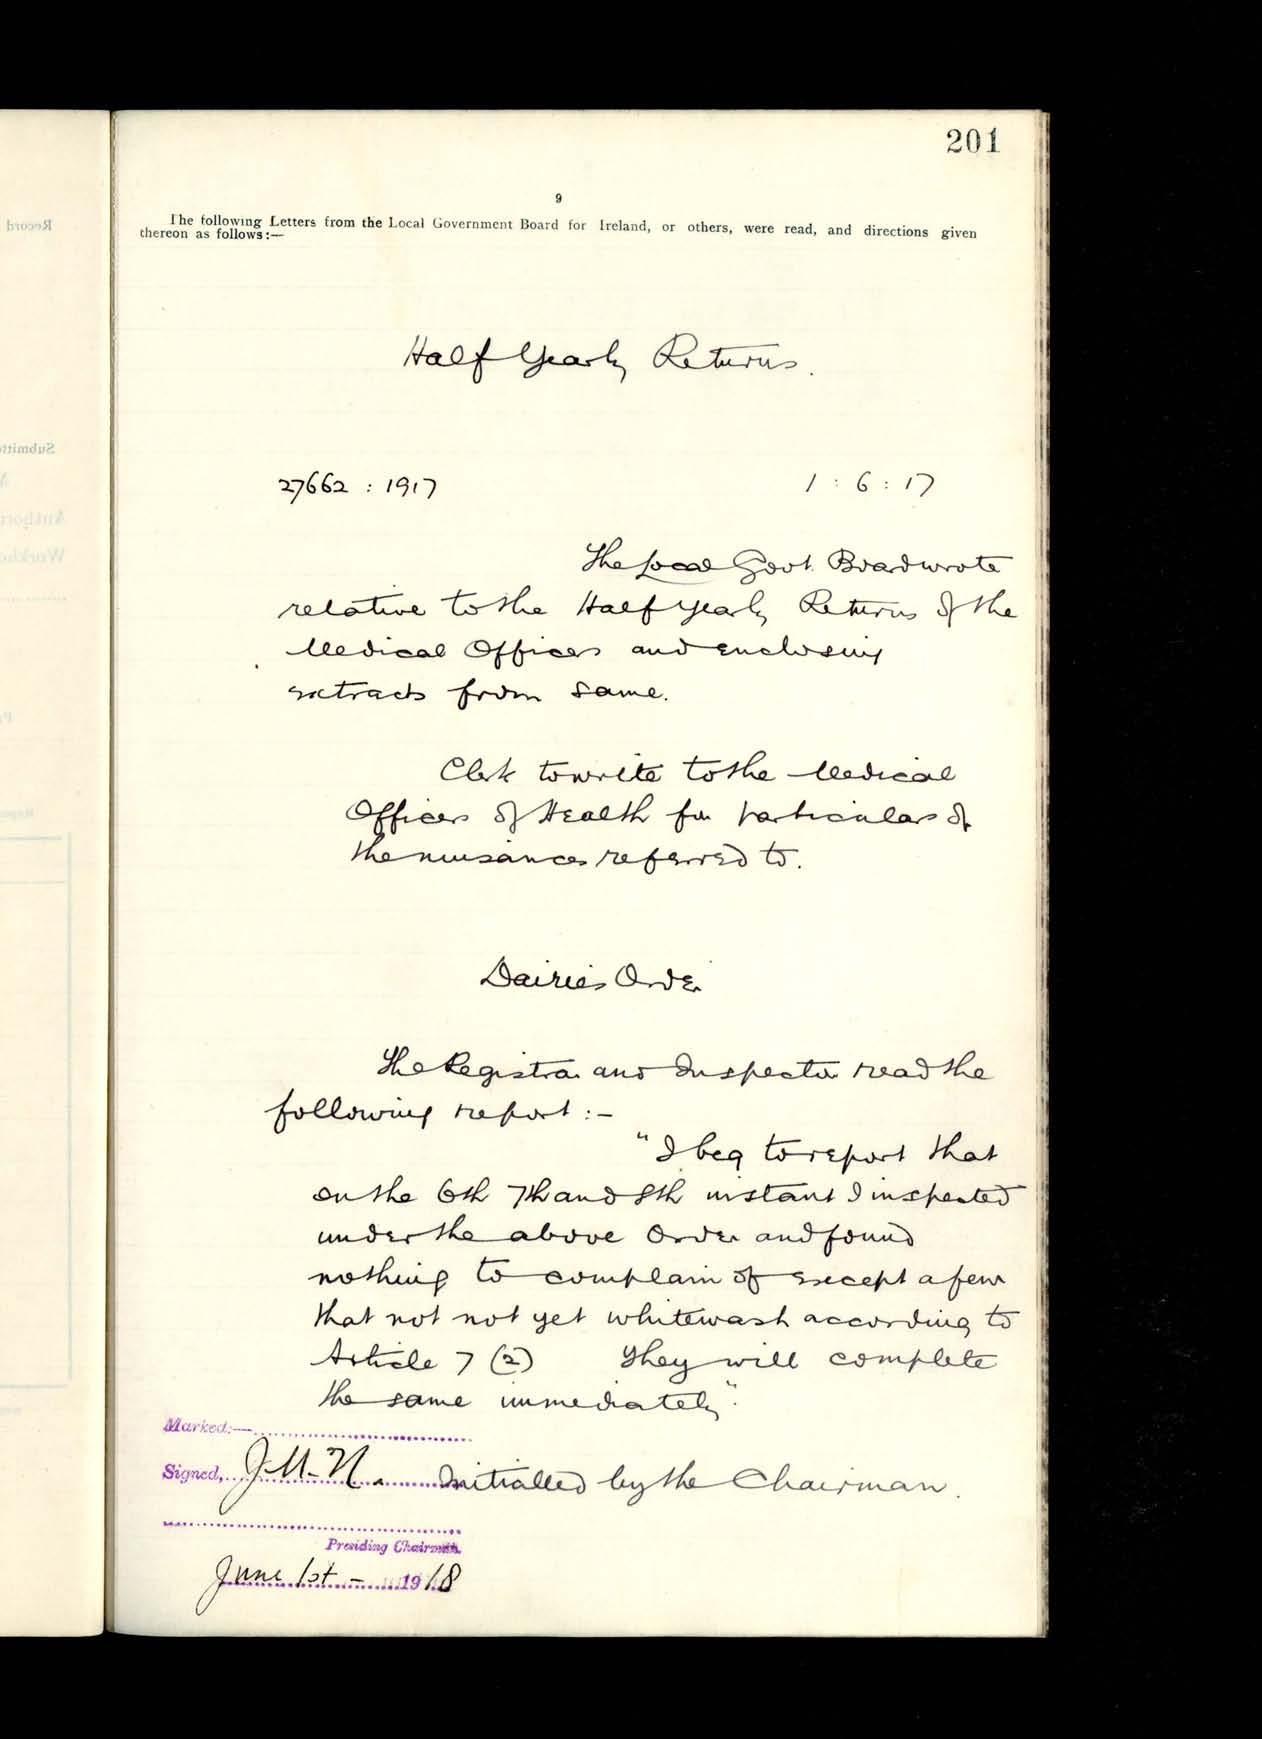 201
9
The following Letters from the Local Government Board for Ireland, or others, were read, and directions given
thereon as follows:—
Half Yearly Returns.
27662 : 1917 1 : 6 : 17
The Local Govt. Board wrote
relative to the Half Yearly Returns of the
Medical Officers and enclosing
extracts from same.
Clerk to write to the Medical
Officers of Health for particulars of
the nuisances referred to.
Dairies Order
The Registrar and Inspector read the
following report :-
"I beg to report that
on the 6th 7th and 8th instant I inspected
under the above Order and found
nothing to complain of except a few
that not not yet whitewash according to
Article 7 (2) They will complete
the same immediately".
Marked:—
Signed, J.M.N. Initialled by the Chairman.
Presiding Chairman.
June 1st - 1918
Record
Submitte
Author
Workho